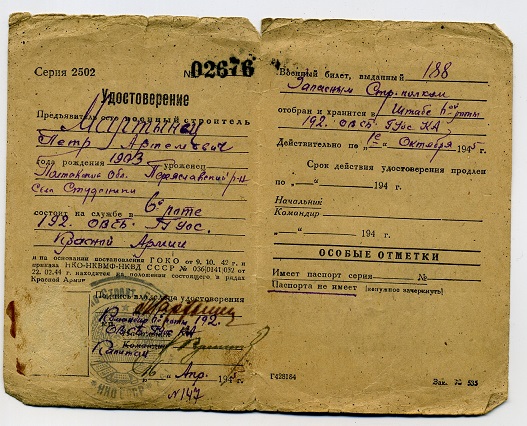 Серия 2502
№ 02676
Удостоверение
Предъявитель сего военный строитель
Мартынец
Петр Артемович
года рождения 1903 уроженец
Полтавская Обл. Переяславский р-н
Село Студеники
состоит на службе в 6й роте
192. ОВСБ. ГУОС.
Красной Армии
и на основании постановления ГОКО от 9. 10. 42 г. и
приказа НКО-НКВМФ-НКВД СССР № 036/0141/092 от
22. 02. 44 г. находится на положении состоящего в рядах
Красной Армии
Подпись владельца удостоверения
Командир 6й роты 192.
ОВСБ ГУОС КА
Командир
Капитан
„16“ Апр. 1945
№147
НКО СССР
Военный билет, выданный 188
Запасным Стр. полком
отобран и хранится в Штабе 6 ой роты
192. ОВСБ. ГУОС КА
Действительно по „1го“ Октября 1945
Срок действия удостоверения продлен
по „ “ 194 г.
Начальник
Командир
„ “ 194 г.
ОСОБЫЕ ОТМЕТКИ
Имеет паспорт серия №
Паспорта не имеет (ненужное зачеркнуть)
Г428184
Зак. № 535